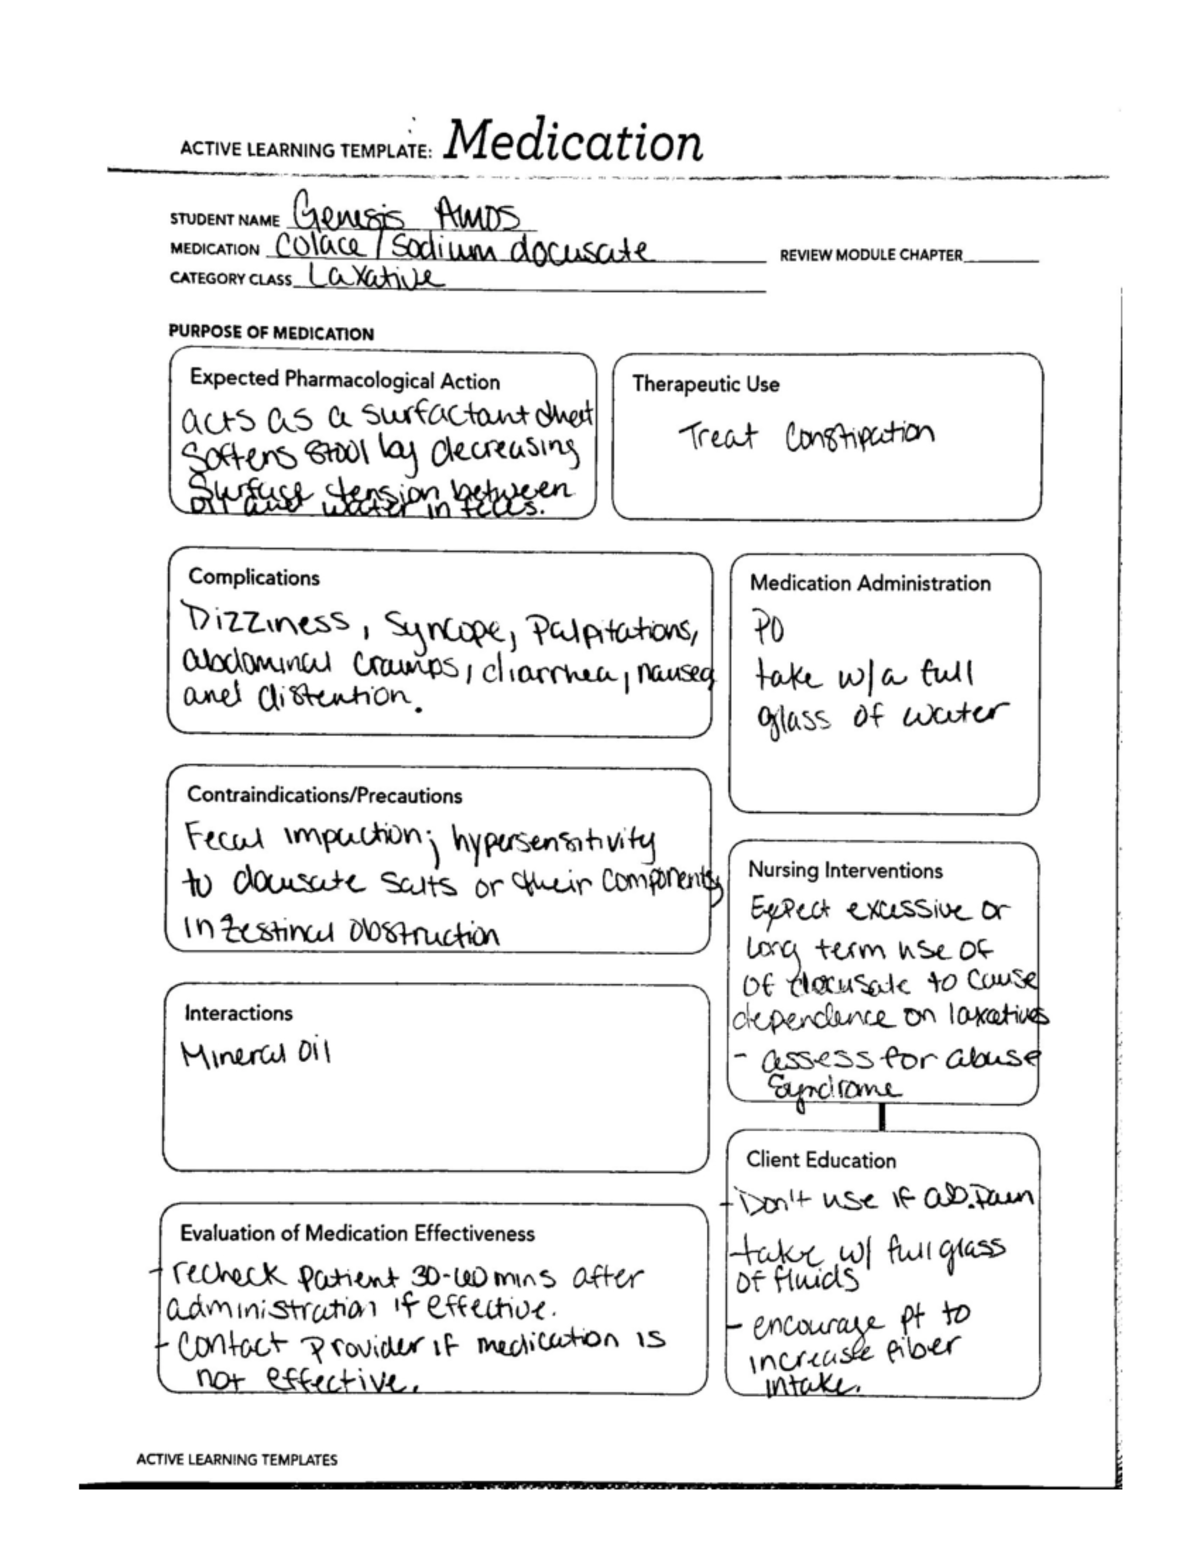 ACTIVE LEARNING TEMPLATE: Medication
STUDENT NAME Genesis Amos
MEDICATION Colace / Sodium docusate
REVIEW MODULE CHAPTER
CATEGORY CLASS Laxative
PURPOSE OF MEDICATION
Expected Pharmacological Action
acts as a surfactant that
Softens stool by decreasing
Surface tension between
oil and water in feces.
Therapeutic Use
Treat Constipation
Complications
Dizziness, Syncope, Palpitations,
abdominal cramps, diarrhea, nausea
and distention.
Medication Administration
PO
take w/a full
glass of water
Contraindications/Precautions
Fecal impaction; hypersensitivity
to docusate salts or their components
Intestinal obstruction
Nursing Interventions
Expect excessive or
long term use of
of docusate to cause
dependence on laxatives
- assess for abuse
Syndrome
Interactions
Mineral Oil
Client Education
- Don't use if ab. Pain
- take w/ full glass
of fluids
- encourage pt to
increase fiber
intake.
Evaluation of Medication Effectiveness
- recheck patient 30-60 mins after
administration if effective.
- Contact Provider if medication is
not effective.
ACTIVE LEARNING TEMPLATES